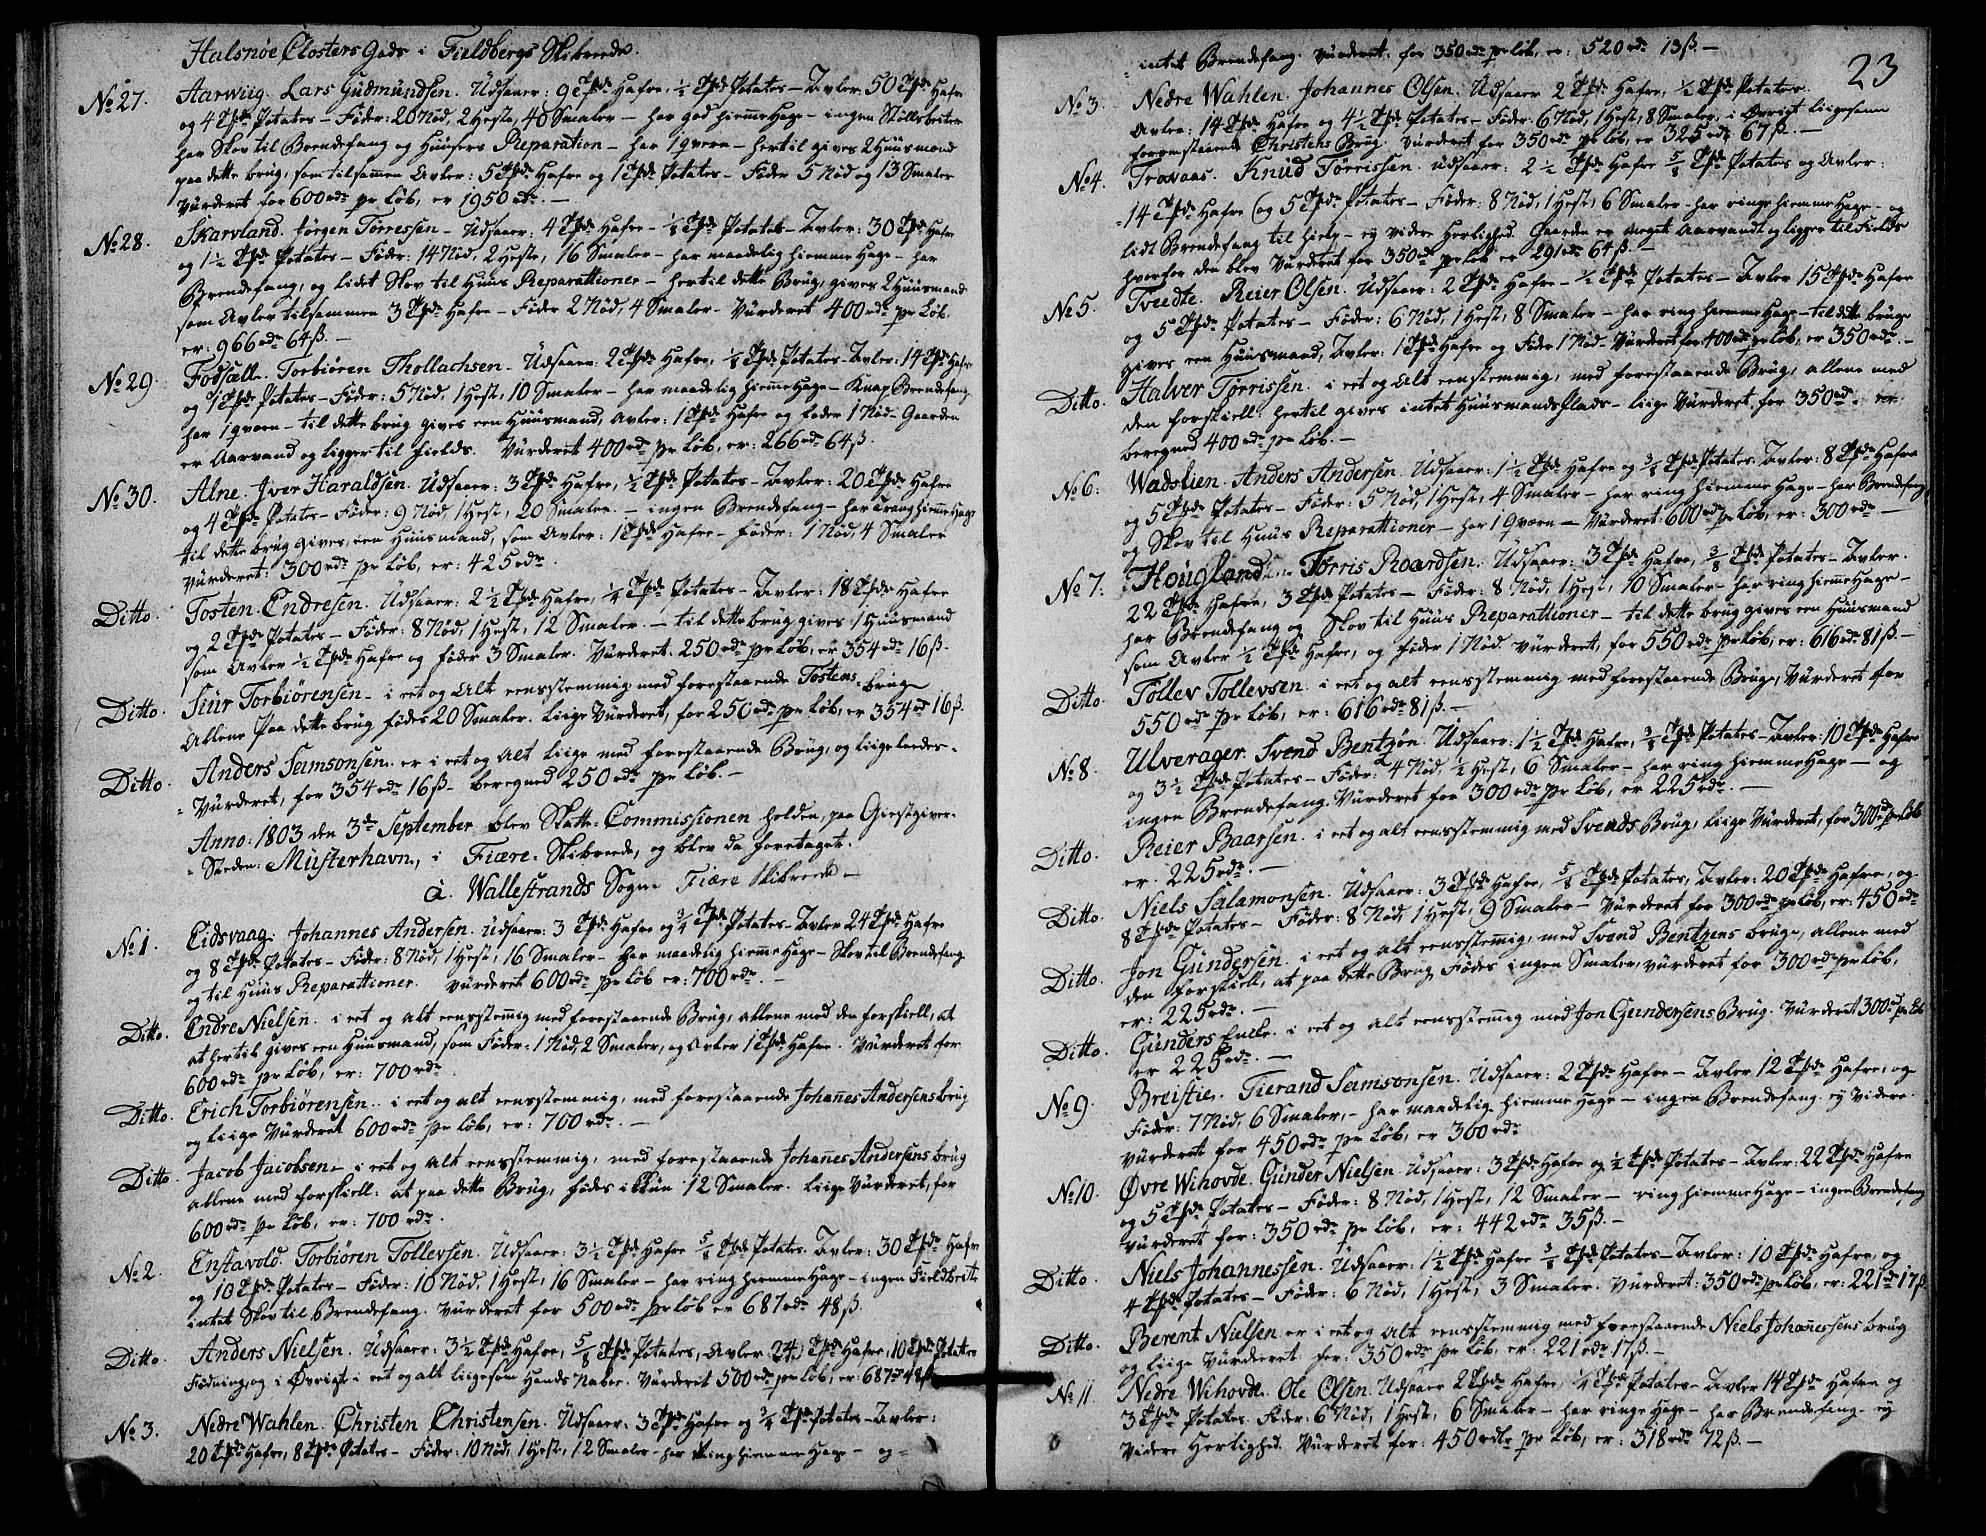 Halsnøe Closters Gods i Fieldbergs Skibrede.
No 27. Aarwiig. Lars Gudmundsen. Udsaaer: 9 Tde Hafre, ½ Tde Potates – Avler 50 Tde Hafre
og 4 Tde Potates – Føder: 20 Nød, 2 Heste, 40 Smaler – har god hiemme Hage – ingen
har Skov til Brendefang og Huusers Reparation – har 1 qværn – hertil gives 2 Huusmænd
paa dette brug, som tilsamen Avler: 5 Tde Hafre og 1 Tde Potates – Føder 5 Nød og 13 Smaler
Vurderet for 600 rdr pr Løb, er 1950 rdr. –
No 28. Skarvland. Jørgen Tørressen – Udsaaer: 4 Tde Hafre – ¼ Tde Potates – Avler: 30 Tde Hafre
og 1½ Tde Potates – Føder: 14 Nød, 2 Heste, 16 Smaler – har maadelig hiemme Hage – har
Brendefang, og lidet Skov til Huus Reparattioner – hertil dette Brug, gives 2 Huusmænd
som Avler tilsammen 3 Tde Hafre – Føder 2 Nød, 4 Smaler – Vurderet 400 rdr pr Løb,
er: 966 rdr 64 ß. –
No 29. Fodsæll. Torbiøren Thollachsen – Udsaaer: 2 Tde Hafre, ⅛ Tde Potates – Avler: 14 Tde Hafre
og 1 Tde Potates – Føder: 5 Nød, 1 Hest, 10 Smaler – har maadelig hiemme Hage – Knap Brendefang
har 1 qværn – til dette brug gives een Huusmand, Avler: 1 Tde Hafre og Føder 1 Nød – Gaarden
er Aarvand og ligger til Fields. Vurderet 400 rdr pr Løb, er: 266 rdr 64 ß.
No 30. Alne. Iver Haraldsen. Udsaaer: 3 Tde Hafre, ½ Tde Potates – Avler: 20 Tde Hafre
og 4 Tde Potates – Føder: 9 Nød, 1 Hest, 20 Smaler. – ingen Brendefang – har Trang hiemme Hage
til dette brug gives een Huusmand, som Avler: 1 Tde Hafre – Føder: 1 Nød, 4 Smaler
Vurderet: 300 rdr pr Løb, er: 425 rdr.
Ditto. Tosten Endresen. Udsaaer: 2½ Tde Hafre, ¼ Tde Potates – Avler: 18 Tde Hafre
og 2 Tde Potates – Føder: 8 Nød, 1 Hest, 12 Smaler. – til dette brug gives 1 Huusmand
som Avler ½ Tde Hafre og Føder 3 Smaler. Vurderet 250 rdr pr Løb, er 354 rdr 16 ß.
Ditto. Siur Torbiørensen – i eet og Alt eensstemmig med forestaaende Tostens brug
Allene paa dette brug fødes 20 Smaler. Liige Vurderet, for 250 rdr pr Løb, er 354 rd 16 ß.
Ditto. Anders Samsonsen. er i eet og Alt liige med forestaaende Brug, og liigeleedes
Vurderet, for 354 rdr 16 ß – beregned 250 rdr pr Løb. –
Anno: 1803 den 3de September blev Skatte-Commissionen holden, paa Giestgiver-
Stæden: Musterhavn, i Fiære Skibrede, og blev da foretaget.
à. Wallestrands Sogn Fiære Skibrede –
No 1. Eidsvaag. Johannes Andersen. Udsaaer: 3 Tde Hafre og ¾ Tde Potates – Avler 24 Tde Hafre
og 8 Tde Potates – Føder: 8 Nød, 1 Hest, 16 Smaler – har maadelig hiemme Hage – Skov til Brendefang
og til Huus Reparattioner. Vurderet 600 rdr pr Løb er: 700 rdr. –
Ditto. Endre Nielsen. i eet og alt eensstemig med forestaaende Brug, allene med den forskiell, at
at hertil gives een Huusmand, som Føder: 1 Nød, 2 Smaler, og Avler 1 Tde Hafre. Vurderet for
600 rdr pr Løb, er: 700 rdr.
Ditto. Erich Torbiørensen. i eet og alt eensstemmig, med forestaaende Johanes Andersens brug
og liige Vurderet 600 rdr pr Løb, er: 700 rdr. –
Ditto. Jacob Jacobsen – i eet og Alt eensstemmig, med forestaaende Johanes Andersens brug
allene med forskiell: at paa dette Brug, fødes ikkun 12 Smaler. Liige Vurderet, for
600 rdr pr Løb, er: 700 rdr.
No 2. Enstavold. Torbiøren Tollevsen. Udsaaer: 3½ Tde Hafre ⅝ Tde Potates. Avler: 30 Tde Hafre
og 10 Tde Potates – Føder: 10 Nød, 1 Hest, 16 Smaler – har ring hiemme Hage – ingen Fieldbeite
intet Skov til Brendefang. Vurderet for 500 rdr pr Løb er 687 rdr 48 ß.
Ditto. Anders Nielsen. Udsaaer: 3½ Tde Hafre, ⅝ Tde Potates, Avler 24 Tde Hafre, 10 Tde Potates
Fødning, og i Øvrigt i eet og alt liigesom Hands Nabor. Vurderet 500 rdr pr Løb, er: 687 rdr 48 ß
No 3. Nedre Wahlen. Christen Christensen. Udsaaer: 3 Tde Hafre og ¾ Tde Potates – Avler:
20 Tde Hafre, 8 Tde Potates – Føder: 10 Nød, 1 Hest, 12 Smaler – har Ring hiemme Hage – og –
23
intet Brendefang. Vurderet, for 350 rdr pr Løb, er: 520 rdr 13 ß. –
No 3. Nedre Wahlen. Johannes Olsen. Udsaaer 2 Tde Hafre, ½ Tde Potates.
Avler: 14 Tde Hafre og 4½ Tde Potates – Føder: 6 Nød, 1 Hest, 8 Smaler, i Øvrigt liigesom
forrestaaende Christens Brug. Vurderet for 350 rdr pr Løb, er 325 rdr 67 ß. –
No 4. Trovaas. Knud Tørrissen. Udsaaer: 2½ Tde Hafre ⅝ Tde Potates og Avler:
14 Tde Hafre (og 5 Tde Potates – Føder: 8 Nød, 1 Hest, 6 Smaler – har ringe hiemme Hage – og
lidt Brendefang til hielp – ey videre Herlighed. Gaarden er meget Aarvandt og ligger til Fields
hvorfor den blev Vurderet for 350 rdr pr Løb er 291 rdr 64 ß. –
No 5. Tvedte. Reier Olsen. Udsaaer: 2 Tde Hafre – ½ Tde Potates – Avler 15 Tde Hafre
og 5 Tde Potates – Føder: 6 Nød, 1 Hest, 8 Smaler – har ring hiemme Hage – til dette brug
gives een Huusmand, Avler: 1 Tde Hafre og Føder 1 Nød. Vurderet for 400 rdr pr Løb, er 350 rdr. –
Ditto. Halver Tørrissen. i eet og Alt eenstemmig, med forestaaende Brug, allene med
den forskiell: hertil gives intet Huusmandsplads – liige Vurderet, for 350 rdr.
beregned 400 rdr pr Løb. –
No 6. Wadslien. Anders Andersen. Udsaaer: 1½ Tde Hafre og ⅜ Tde Potates. Avler: 8 Tde Hafre
og 5 Tde Potates – Føder: 5 Nød, 1 Hest, 4 Smaler – har ring hiemme Hage – har Brendefang
og Skov til Huus Reparattioner – har 1 Qværn – Vurderet: 600 rdr pr Løb, er: 300 rdr –
No 7. Hougland. Tørris Roardsen. Udsaaer: 3 Tde Hafre, ⅜ Tde Potates – Avler.
22 Tde Hafre, 3 Tde Potates – Føder: 8 Nød, 1 Hest, 10 Smaler – har ring hieme Hage –
har Brendefang og Skov til Huus Reparattioner – til dette brug gives een Huusmand
som Avler ½ Tde Hafre, og Føder 1 Nød. Vurderet, for 550 rdr pr Løb, er: 616 rdr 81 ß. –
Ditto. Tollev Tollevsen. i eet og alt eensstemmig med forestaaende Brug, Vurderet for
550 rdr pr Løb, er: 616 rdr 81 ß. –
No 8. Ulverager. Svend Bentzøn. Udsaaer: 1½ Tde Hafre, ⅜ Tde Potates – Avler: 10 Tde Hafre
og 3½ Tde Potates – Føder: 4 Nød, ½ Hest, 6 Smaler – har ring hiemme Hage – og
ingen Brendefang. Vurderet for 300 rdr pr Løb, er 225 rdr. –
Ditto. Reier Baarsen. i eet og alt eensstemmig med Svends Brug, liige Vurderet, for 300 rdr pr Løb
er: 225 rdr. –
Ditto. Niels Salamonsen. Udsaaer: 3 Tde Hafre, ⅝ Tde Potates, Avler: 20 Tde Hafre, og
8 Tde Potates – Føder: 8 Nød, 1 Hest, 9 Smaler – Vurderet for 300 rdr pr Løb, er: 450 rdr
Ditto. Jon Gundersen. i eet og alt eensstemig, med Svend Bentzens brug, allene med
den forskiell, at paa dette Brug Fødes ingen Smaler, Vurderet for 300 rdr pr Løb,
er: 225 rdr. –
Ditto. Gunders Enke. i eet og Alt eensstemig med Jon Gundersens Brug. Vurderet 300 rd pr Løb
er 225 rdr. –
No 9. Breistie. Tierand Samsonsen. Udsaaer: 2 Tde Hafre – Avler 12 Tde Hafre, og
Føder: 7 Nød, 6 Smaler, – har maadelig hiemme Hage – ingen Brendefang. ey Videre.
Vurderet for 450 rdr pr Løb, er 300 rdr
No 10. Øvre Wihovde. Gunder Nielsen. Udsaaer: 3 Tde Hafre og ½ Tde Potates – Avler: 22 Tde Hafre
og 5 Tde Potates – Føder: 8 Nød, 1 Hest, 12 Smaler – ring hiemme Hage – ingen Brendefang
Vurderet for: 350 rdr pr Løb, er: 442 rdr 35 ß. –
Ditto. Niels Johannessen. Udsaaer: 1½ Tde Hafre ⅜ Tde Potates – Avler: 10 Tde Hafre, og
4 Tde Potates – Føder: 6 Nød, 1 Hest, 3 Smaler. Vurderet: 350 rdr pr Løb, er: 221 rdr 17 ß
Ditto. Berent Nielsen er i eet og Alt eensstemmig med forestaaende Niels Johanessens brug
og liige Vurderet for: 350 rdr pr Løb, er: 221 rdr 17 ß. –
No 11. Nedre Wihovde. Ole Olsen. Udsaaer 2 Tde Hafre, ¼ Tde Potates – Avler 14 Tde Hafre og
3 Tde Potates. Føder: 6 Nød, 1 Hest, 6 Smaler – har ringe Hage – har Brendefang – ey
Videre Herlighed. Vurderet for: 450 rdlr pr Løb, er: 318 rdr 72 ß. –